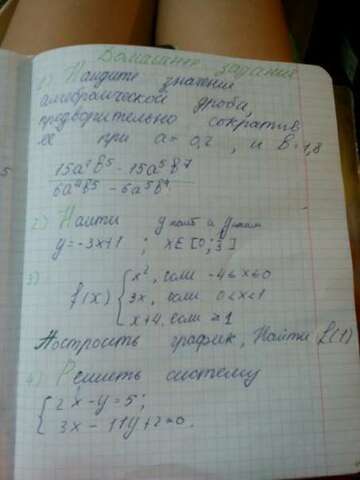 Домашнее задание
1) Найдите значение
алгебраической дроби,
предварительно сократив
её при a = 0,2, и b = 1,8
15a⁷b⁵ - 15a⁵b⁷
6a⁴b⁵ - 6a⁵b⁴
2) Найти y наиб и y наим
y = -3x+1 ; x∈[0;3]
3)
f(x) { x², если -4≤x≤0
3x, если 0<x<1
x+4, если ≥1
Построить график, Найти f(1)
4) Решить систему
{ 2x-y=5;
3x-11y+2=0.